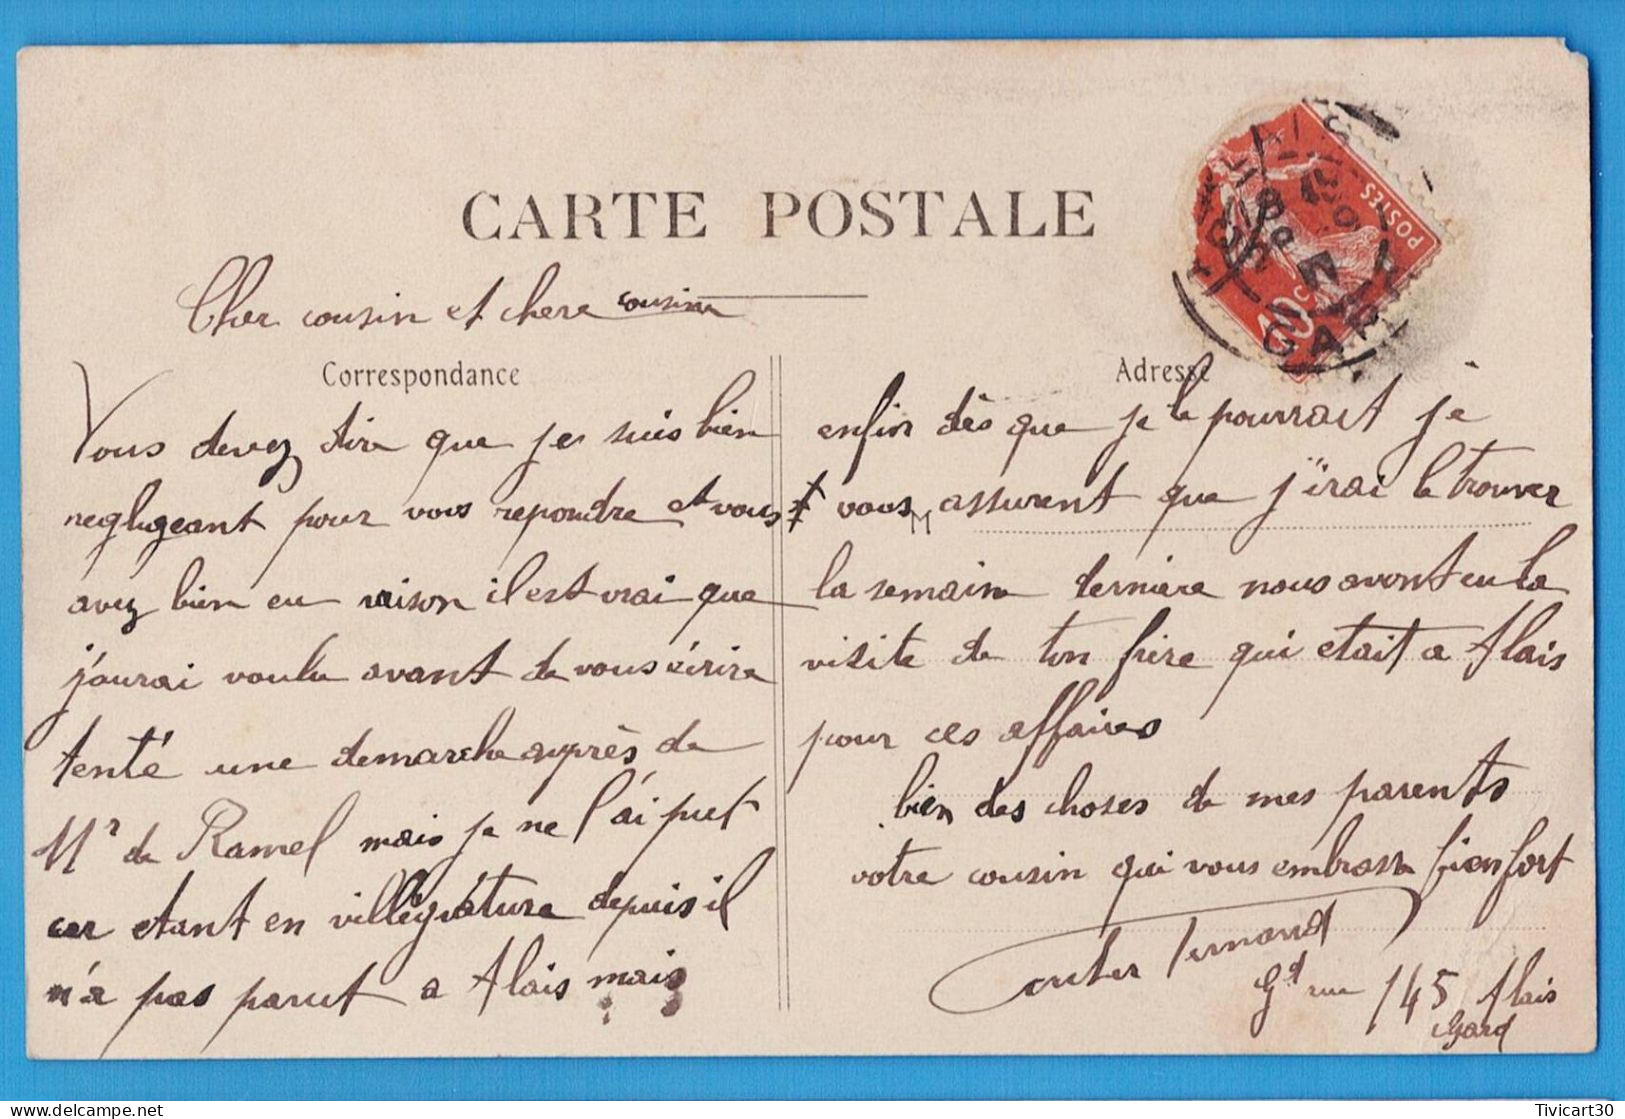 CARTE POSTALE
Cher cousin et chere cousine
Correspondance
Vous devez dire que je suis bien
neglugeant pour vous repondre et vous
avez bien eu raison il est vrai que
j'aurai voulu avant de vous écrire
tenté une demarche auprès de
Mr de Ramel mais je ne l'ai put
car etant en villégiature depuis il
n'a pas parut a Alais mais
Adresse
enfin dès que je le pourrait je
vous assurent que j'irai le trouver
M
la semaine derniere nous avont eu la
visite de ton frere qui etait a Alais
pour ces affaires
bien des choses de mes parents
votre cousin qui vous embrasse bien fort
Fernand
Gd rue 145 Alais
Gard
POSTES
10c
ALAIS
GARD
Tivicart30